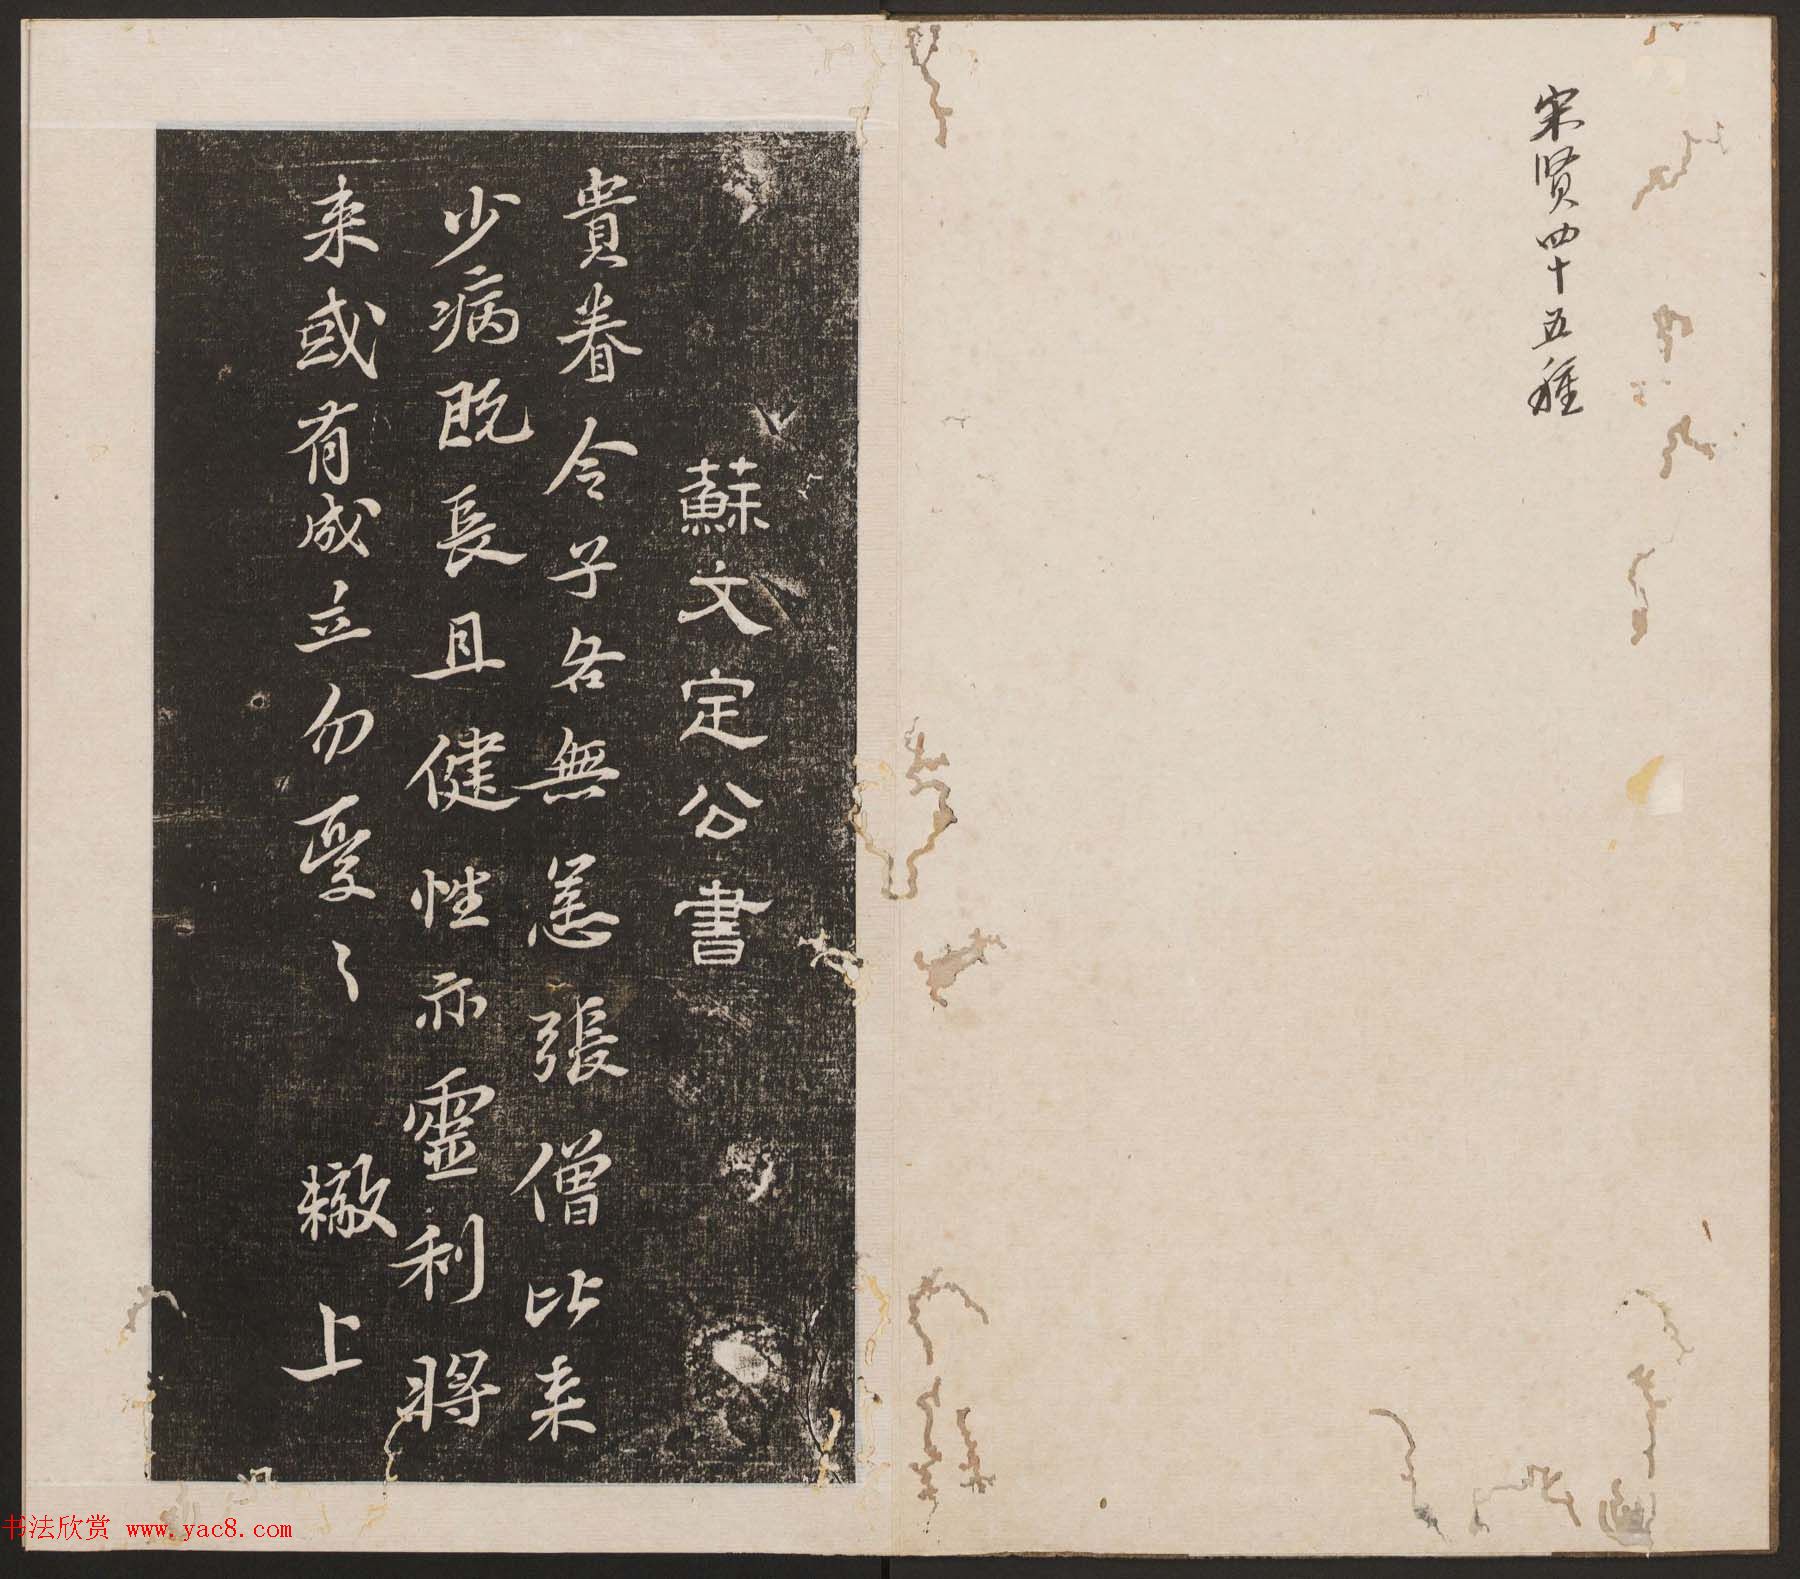 宋贤四十五種
蘇文定公書
貴眷令子各無恙張僧比来
少病既長且健性亦靈利將
来或有成立勿憂〻
轍上
书法欣赏 www.yac8.com